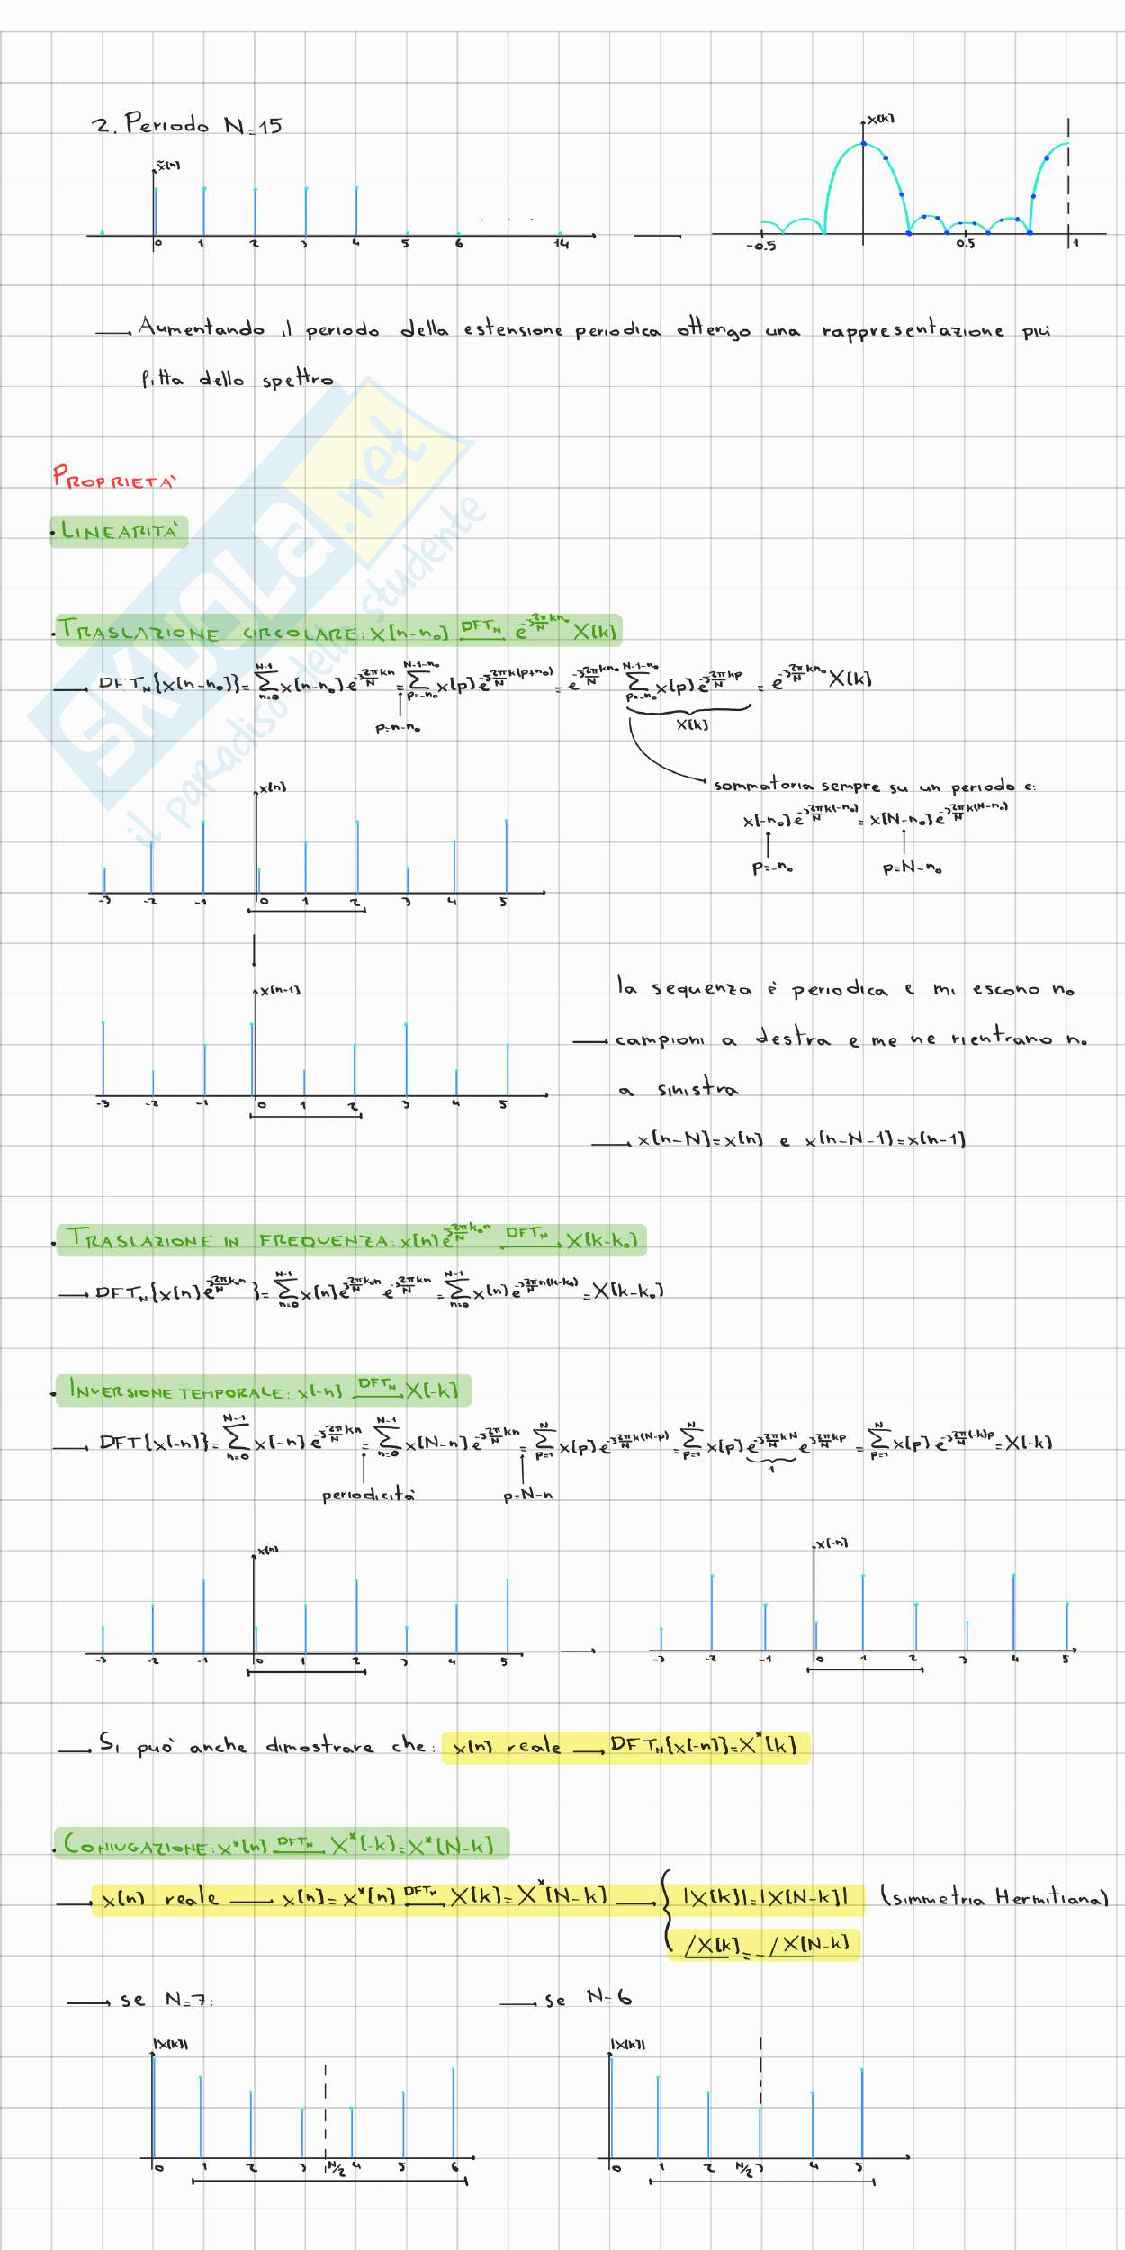 2. Periodo N=15
x̃[n]
0 1 2 3 4 5 6 14
X[k]
-0.5 0.5 1
→ Aumentando il periodo della estensione periodica ottengo una rappresentazione più
fitta dello spettro
PROPRIETÀ
• LINEARITÀ
• TRASLAZIONE CIRCOLARE: x[n-n₀] DFT_N → e^{-j2π/N kn₀} X[k]
→ DFT_N{x[n-n₀]} = Σ_{n=0}^{N-1} x[n-n₀] e^{-j2π/N kn} = Σ_{p=-n₀}^{N-1-n₀} x[p] e^{-j2π/N k(p+n₀)} = e^{-j2π/N kn₀} Σ_{p=-n₀}^{N-1-n₀} x[p] e^{-j2π/N kp} = e^{-j2π/N kn₀} X[k]
p=n-n₀
X[k]
sommatoria sempre su un periodo e:
x[-n₀] e^{-j2π/N k(-n₀)} = x[N-n₀] e^{-j2π/N k(N-n₀)}
p=-n₀ p=N-n₀
x[n]
-3 -2 -1 0 1 2 3 4 5
x[n-1]
-3 -2 -1 0 1 2 3 4 5
la sequenza è periodica e mi escono n₀
→ campioni a destra e me ne rientrano n₀
a sinistra
→ x[n-N]=x[n] e x[n-N-1]=x[n-1]
• TRASLAZIONE IN FREQUENZA: x[n] e^{j2π/N k₀n} DFT_N → X[k-k₀]
→ DFT_N{x[n] e^{j2π/N k₀n}} = Σ_{n=0}^{N-1} x[n] e^{j2π/N k₀n} e^{-j2π/N kn} = Σ_{n=0}^{N-1} x[n] e^{-j2π/N n(k-k₀)} = X[k-k₀]
• INVERSIONE TEMPORALE: x[-n] DFT_N → X[-k]
→ DFT{x[-n]} = Σ_{n=0}^{N-1} x[-n] e^{-j2π/N kn} = Σ_{n=0}^{N-1} x[N-n] e^{-j2π/N kn} = Σ_{p=1}^{N} x[p] e^{-j2π/N k(N-p)} = Σ_{p=1}^{N} x[p] e^{-j2π/N kN} e^{j2π/N kp} = Σ_{p=1}^{N} x[p] e^{-j2π/N (-k)p} = X[-k]
1
periodicità p=N-n
x[n]
-3 -2 -1 0 1 2 3 4 5
x[-n]
-3 -2 -1 0 1 2 3 4 5
→ Si può anche dimostrare che: x[n] reale → DFT_N{x[-n]}=X*[k]
• CONIUGAZIONE: x*[n] DFT_N → X*[-k]=X*[N-k]
→ x[n] reale → x[n]=x*[n] DFT_N → X[k]=X*[N-k] → { |X[k]|=|X[N-k]| (simmetria Hermitiana)
/X[k] = -/X[N-k]
→ se N=7:
→ se N=6
|X[k]|
0 1 2 3 N/2 4 5 6
|X[k]|
0 1 2 N/2 3 4 5
SKUOLA.net
il paradiso dello studente